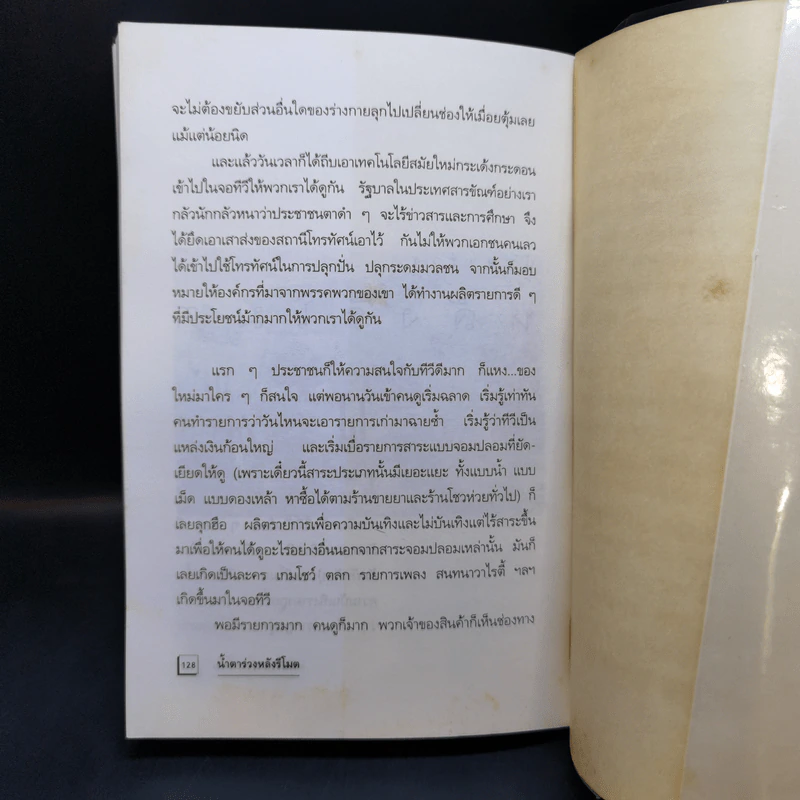 จะไม่ต้องขยับส่วนอื่นใดของร่างกายลุกไปเปลี่ยนช่องให้เมื่อยตุ้มเลย
แม้แต่น้อยนิด
และแล้ววันเวลาก็ได้ถีบเอาเทคโนโลยีสมัยใหม่กระเด้งกระดอน
เข้าไปในจอทีวีให้พวกเราได้ดูกัน รัฐบาลในประเทศสารขัณฑ์อย่างเรา
กลัวนักกลัวหนาว่าประชาชนตาดำ ๆ จะไร้ข่าวสารและการศึกษา จึง
ได้ยึดเอาเสาส่งของสถานีโทรทัศน์เอาไว้ กันไม่ให้พวกเอกชนคนเลว
ได้เข้าไปใช้โทรทัศน์ในการปลุกปั่น ปลุกระดมมวลชน จากนั้นก็มอบ
หมายให้องค์กรที่มาจากพรรคพวกของเขา ได้ทำงานผลิตรายการดี ๆ
ที่มีประโยชน์ม้ากมากให้พวกเราได้ดูกัน
แรก ๆ ประชาชนก็ให้ความสนใจกับทีวีดีมาก ก็แหง...ของ
ใหม่มาใคร ๆ ก็สนใจ แต่พอนานวันเข้าคนดูเริ่มฉลาด เริ่มรู้เท่าทัน
คนทำรายการว่าวันไหนจะเอารายการเก่ามาฉายซ้ำ เริ่มรู้ว่าทีวีเป็น
แหล่งเงินก้อนใหญ่ และเริ่มเบื่อรายการสาระแบบจอมปลอมที่ยัด-
เยียดให้ดู (เพราะเดี๋ยวนี้สาระประเภทนั้นมีเยอะแยะ ทั้งแบบน้ำ แบบ
เม็ด แบบดองเหล้า หาซื้อได้ตามร้านขายยาและร้านโชวห่วยทั่วไป) ก็
เลยลุกฮือ ผลิตรายการเพื่อความบันเทิงและไม่บันเทิงแต่ไร้สาระขึ้น
มาเพื่อให้คนได้ดูอะไรอย่างอื่นนอกจากสาระจอมปลอมเหล่านั้น มันก็
เลยเกิดเป็นละคร เกมโชว์ ตลก รายการเพลง สนทนาวาไรตี้ ฯลฯ
เกิดขึ้นมาในจอทีวี
พอมีรายการมาก คนดูก็มาก พวกเจ้าของสินค้าก็เห็นช่องทาง
128 น้ำตาร่วงหลังรีโมต